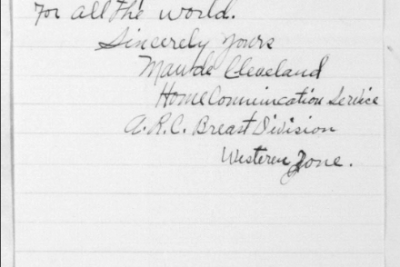 for all the world.
Sincerely yours
Maude Cleveland
Home Communication Service
A.R.C. Breast Division
Western Zone.